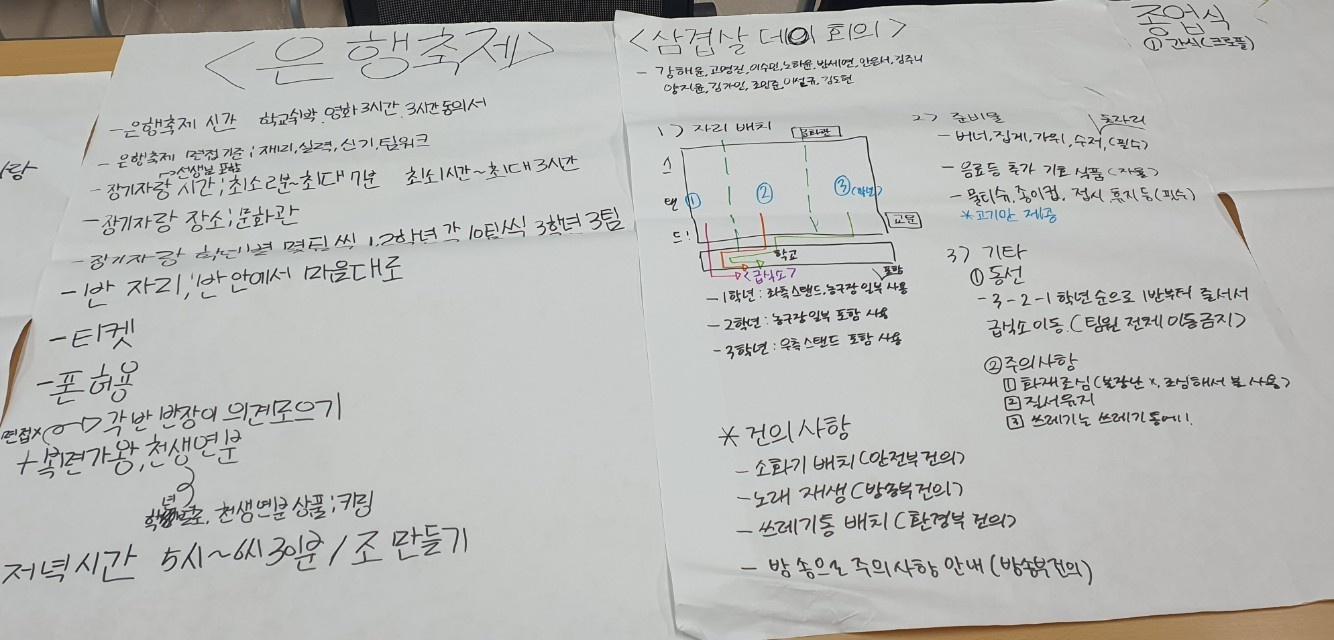 <은행축제>
-은행축제 시간 학교숙박, 영화 3시간, 3시간 동의서
-은행축제 면접 기준; 재미, 실력, 신기, 팀워크
-장기자랑 시간; 최소 2분~최대 7분 최소 1시간~최대 3시간
-장기자랑 장소; 문화관
-장기자랑 몇팀씩 1,2학년 각 10팀씩 3학년 3팀
-1반 자리; 반 안에서 마음대로
-티켓
-폰 허용
면접× 각 반 반장이 의견모으기
+복면가왕, 천생연분
천생연분 상품; 키링
저녁시간 5시~6시 30분 / 조 만들기
<삼겹살 데이 회의>
1) 자리 배치
스
탠
드
① ② ③(학년)
교문
학교
<급식소>
포함
-1학년 : 좌측스탠드, 농구장 일부 사용
-2학년 : 농구장 일부 포함 사용
-3학년 : 우측스탠드 포함 사용
2) 준비물
돗자리
-버너, 집게, 가위, 수저, (필수)
-음료등 추가 기호 식품 (자율)
-물티슈, 종이컵, 접시 휴지 등 (필수)
*고기만 제공
3) 기타
① 동선
-3-2-1 학년 순으로 1반부터 줄서서
급식소 이동. (팀원 전체 이동금지)
② 주의사항
1 화재조심 (불장난 ×, 조심해서 불 사용)
2 질서유지
3 쓰레기는 쓰레기통에!
* 건의사항
- 소화기 배치 (안전부건의)
- 노래 재생 (방송부건의)
- 쓰레기통 배치 (환경부 건의)
- 방송으로 주의사항 안내 (방송부건의)
종업식
① 간식 (크로플)